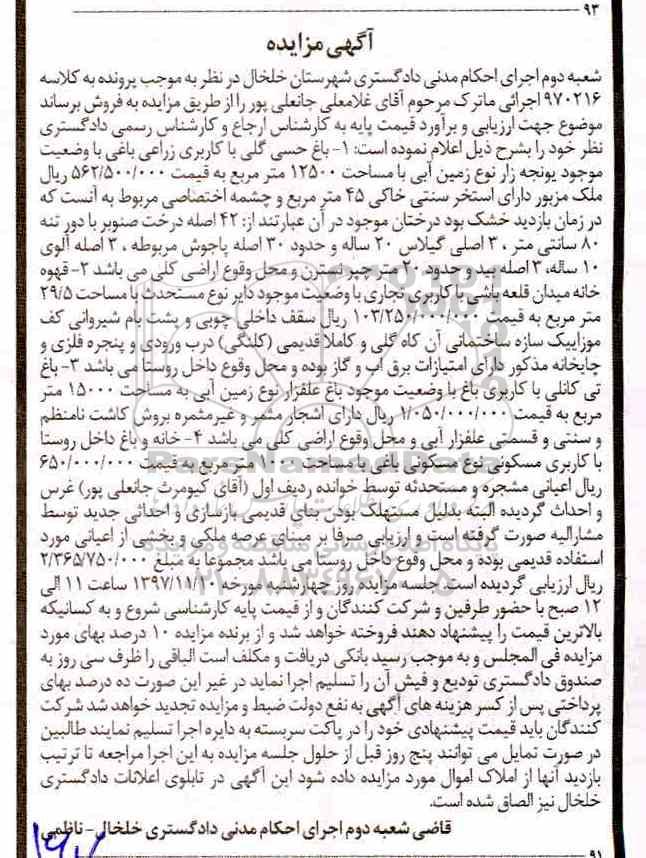 ۹۳
آگهی مزایده
شعبه دوم اجرای احکام مدنی دادگستری شهرستان خلخال در نظر به موجب پرونده به کلاسه
۹۷۰۲۱۶ اجرائی ماترک مرحوم آقای غلامعلی جانعلی پور را از طریق مزایده به فروش برساند
موضوع جهت ارزیابی و برآورد قیمت پایه به کارشناس ارجاع و کارشناس رسمی دادگستری
نظر خود را بشرح ذیل اعلام نموده است: ۱- باغ حسی گلی با کاربری زراعی باغی با وضعیت
موجود یونجه زار نوع زمین آبی با مساحت ۱۲۵۰۰ متر مربع به قیمت ۵۶۲/۵۰۰/۰۰۰ ریال
ملک مزبور دارای استخر سنتی خاکی ۴۵ متر مربع و چشمه اختصاصی مربوط به آنست که
در زمان بازدید خشک بود درختان موجود در آن عبارتند از: ۴۲ اصله درخت صنوبر با دور تنه
۸۰ سانتی متر ، ۳ اصلی گیلاس ۲۰ ساله و حدود ۳۰ اصله پاجوش مربوطه ، ۲ اصله آلوی
۱۰ ساله، ۳ اصله بید و حدود ۲۰ متر چپر نسترن و محل وقوع اراضی کلی می باشد ۲- قهوه
خانه میدان قلعه باشی با کاربری تجاری با وضعیت موجود دایر نوع مستحدث با مساحت ۲۹/۵
متر مربع به قیمت ۱۰۳/۲۵۰/۰۰۰/۰۰۰ ریال سقف داخلی چوبی و پشت بام شیروانی کف
موزاییک سازه ساختمانی آن کاه گلی و کاملا قدیمی (کلنگی) درب ورودی و پنجره فلزی و
چایخانه مذکور دارای امتیازات برق آب و گاز بوده و محل وقوع داخل روستا می باشد ۳- باغ
تی کانلی با کاربری باغ با وضعیت موجود باغ علفزار نوع زمین آبی به مساحت ۱۵۰۰۰ متر
مربع به قیمت ۱/۰۵۰/۰۰۰/۰۰۰ ریال دارای اشجار مثمر و غیرمثمره بروش کاشت نامنظم
و سنتی و قسمتی علفزار آبی و محل وقوع اراضی کلی می باشد ۴- خانه و باغ داخل روستا
با کاربری مسکونی نوع مسکونی باغی با مساحت متر مربع به قیمت ۶۵۰/۰۰۰/۰۰۰
ریال اعیانی مشجره و مستحدثه توسط خوانده ردیف اول (آقای کیومرث جانعلی پور) غرس
و احداث گردیده البته بدلیل مستهلک بودن بنای قدیمی بازسازی و احداثی جدید توسط
مشارالیه صورت گرفته است و ارزیابی صرفا بر مبنای عرصه ملکی و بخشی از اعیانی مورد
استفاده قدیمی بوده و محل وقوع داخل روستا می باشد مجموعا به مبلغ ۲/۳۶۵/۷۵۰/۰۰۰
ریال ارزیابی گردیده است. جلسه مزایده روز چهارشنبه مورخه ۱۳۹۷/۱۱/۱۰ ساعت ۱۱ الی
۱۲ صبح با حضور طرفین و شرکت کنندگان و از قیمت پایه کارشناسی شروع و به کسانیکه
بالاترین قیمت را پیشنهاد دهند فروخته خواهد شد و از برنده مزایده ۱۰ درصد بهای مورد
مزایده فی المجلس و به موجب رسید بانکی دریافت و مکلف است الباقی را ظرف سی روز به
صندوق دادگستری تودیع و فیش آن را تسلیم اجرا نماید در غیر این صورت ده درصد بهای
پرداختی پس از کسر هزینه های آگهی به نفع دولت ضبط و مزایده تجدید خواهد شد شرکت
کنندگان باید قیمت پیشنهادی خود را در پاکت سربسته به دایره اجرا تسلیم نمایند طالبین
در صورت تمایل می توانند پنج روز قبل از حلول جلسه مزایده به این اجرا مراجعه تا ترتیب
بازدید آنها از املاک اموال مورد مزایده داده شود این آگهی در تابلوی اعلانات دادگستری
خلخال نیز الصاق شده است.
قاضی شعبه دوم اجرای احکام مدنی دادگستری خلخال- ناظمی
۹۱